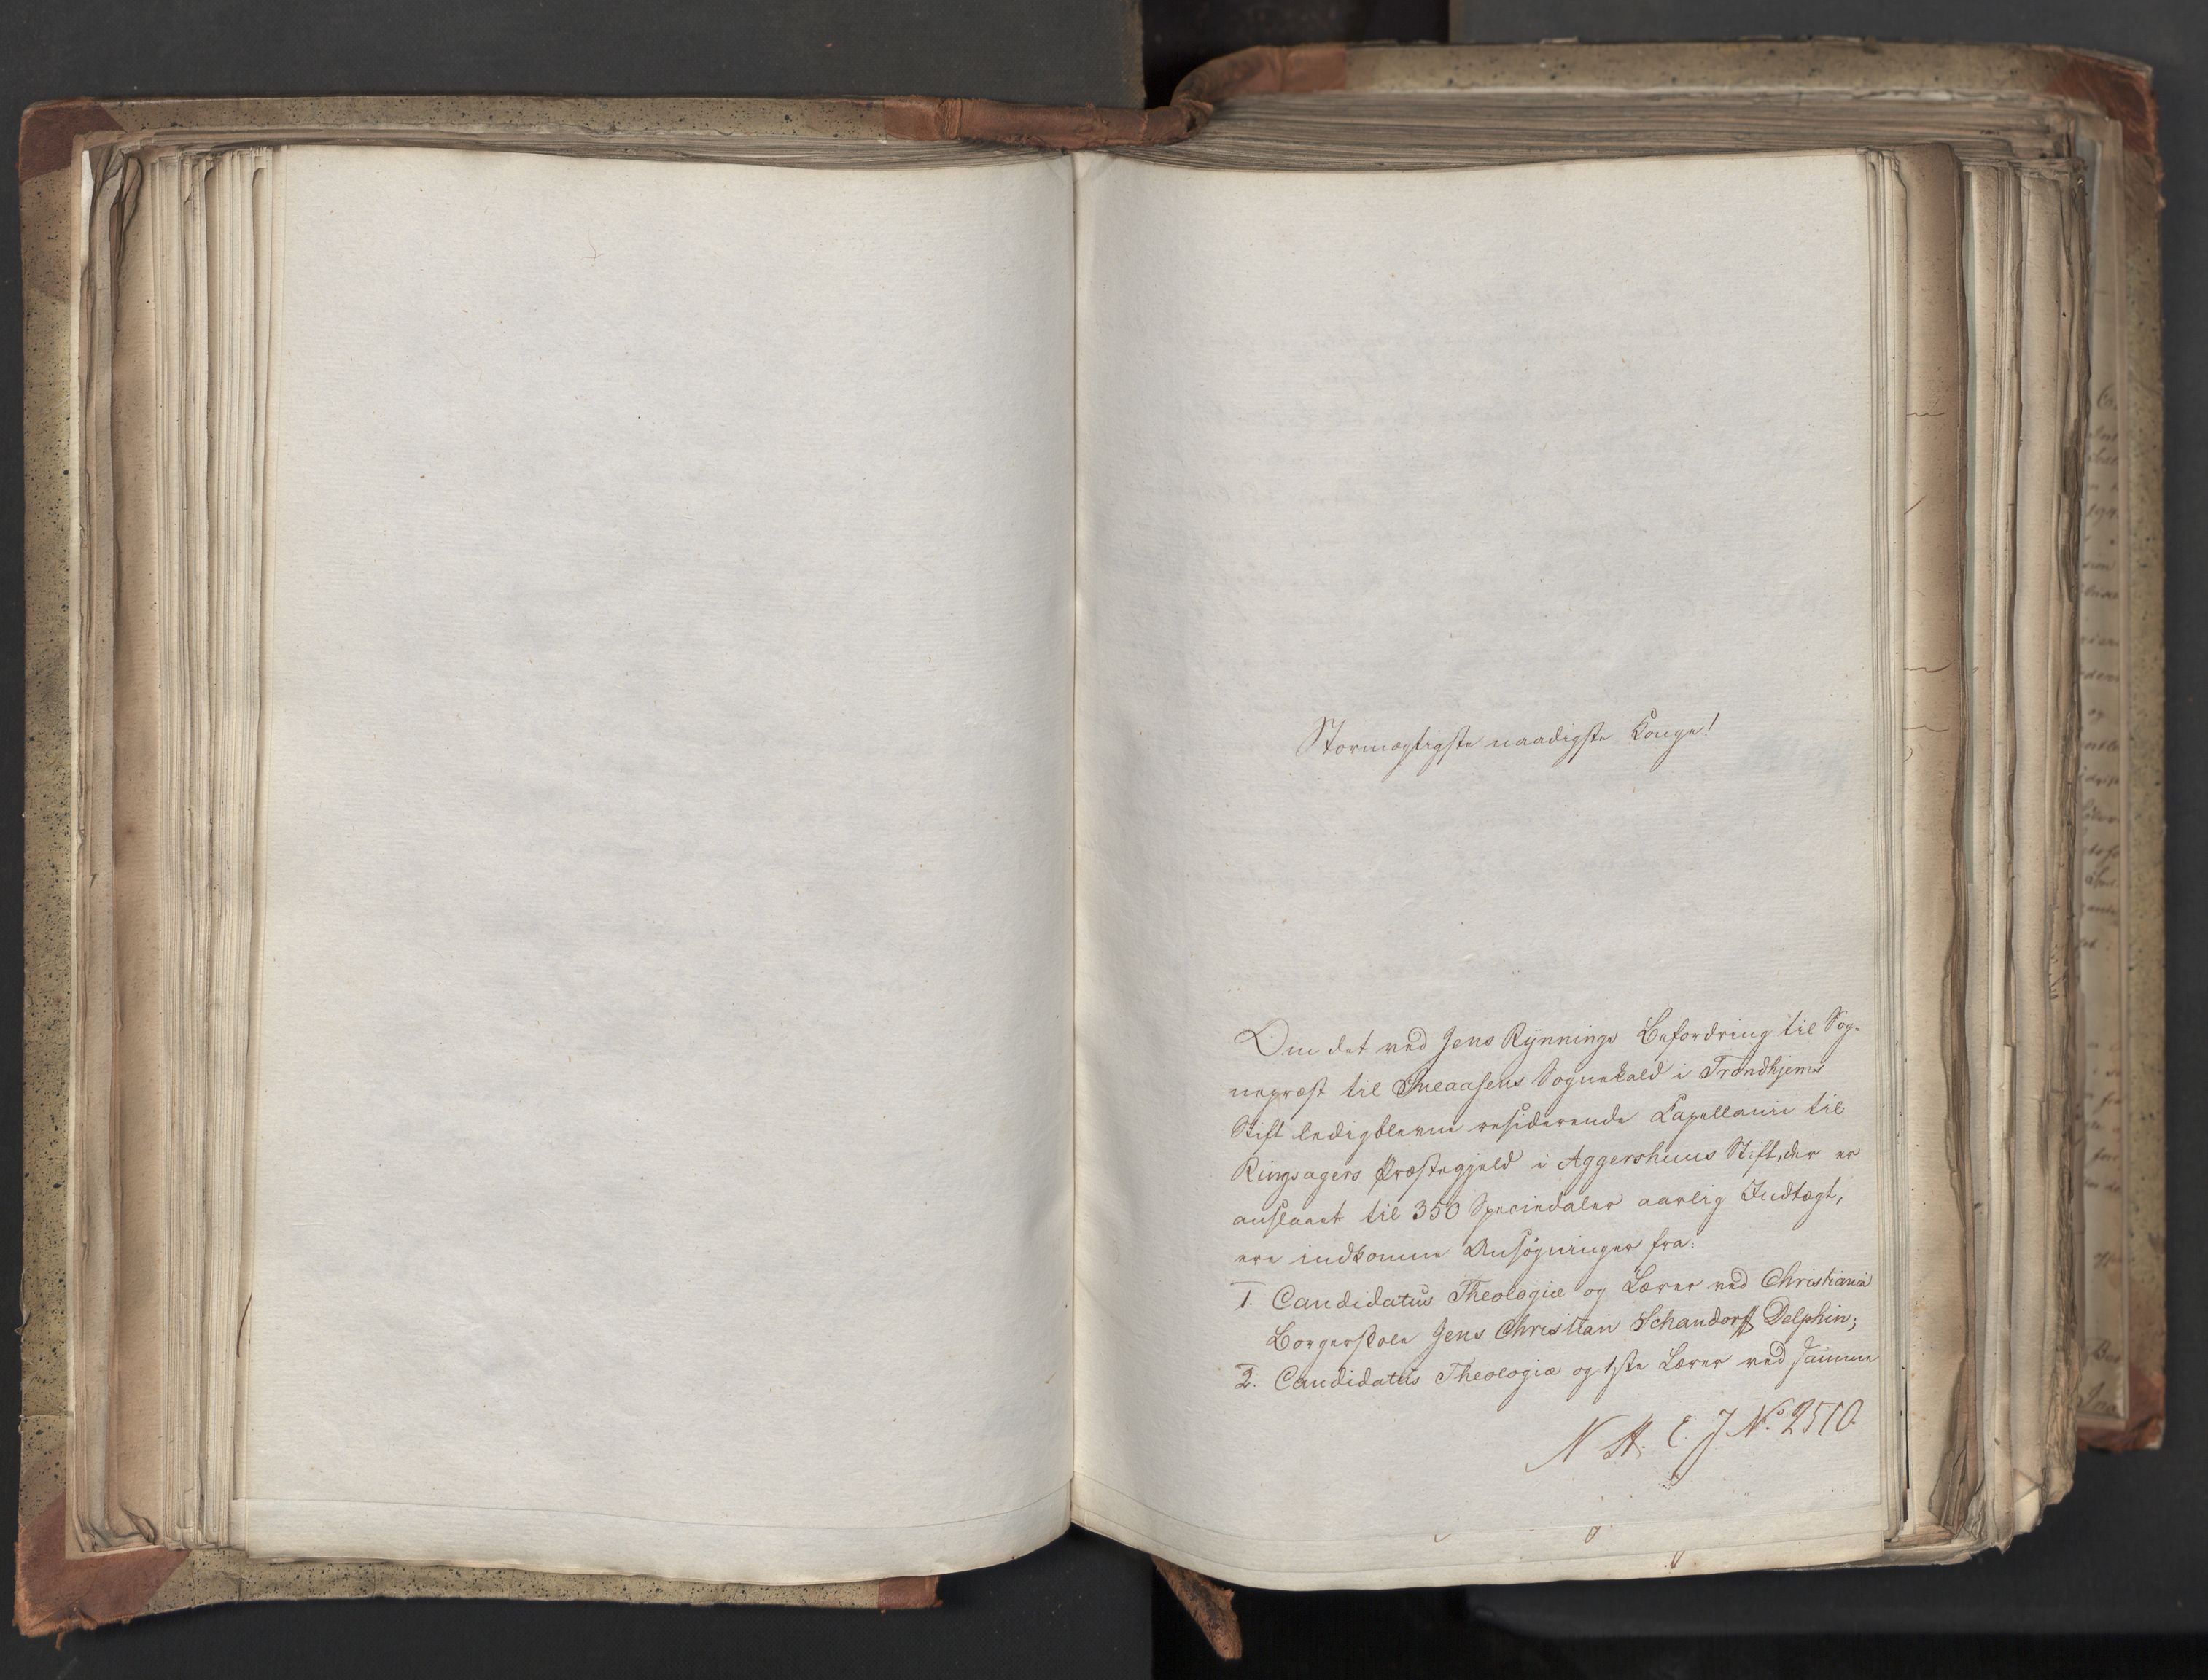 Stormægtigste naadigste Konge!
Om det ved Jens Rynnings Befordring til Sog-
nepræst til Sneaasens Sognekald i Trondhjems
Stift ledigblevne residerende Capellanie til
Ringsagers Præstegjeld i Aggershuus Stift, der er
anslaaet til 350 Speciedaler aarlig Indtægt,
ere indkomne Ansøgninger fra:
1. Candidatus Theologiæ og Lærer ved Christiania
Borgerskole Jens Christian Schandorff Delphin;
2. Candidatus Theologiæ og 1ste Lærer ved samme
N St. E. J No. 2510.